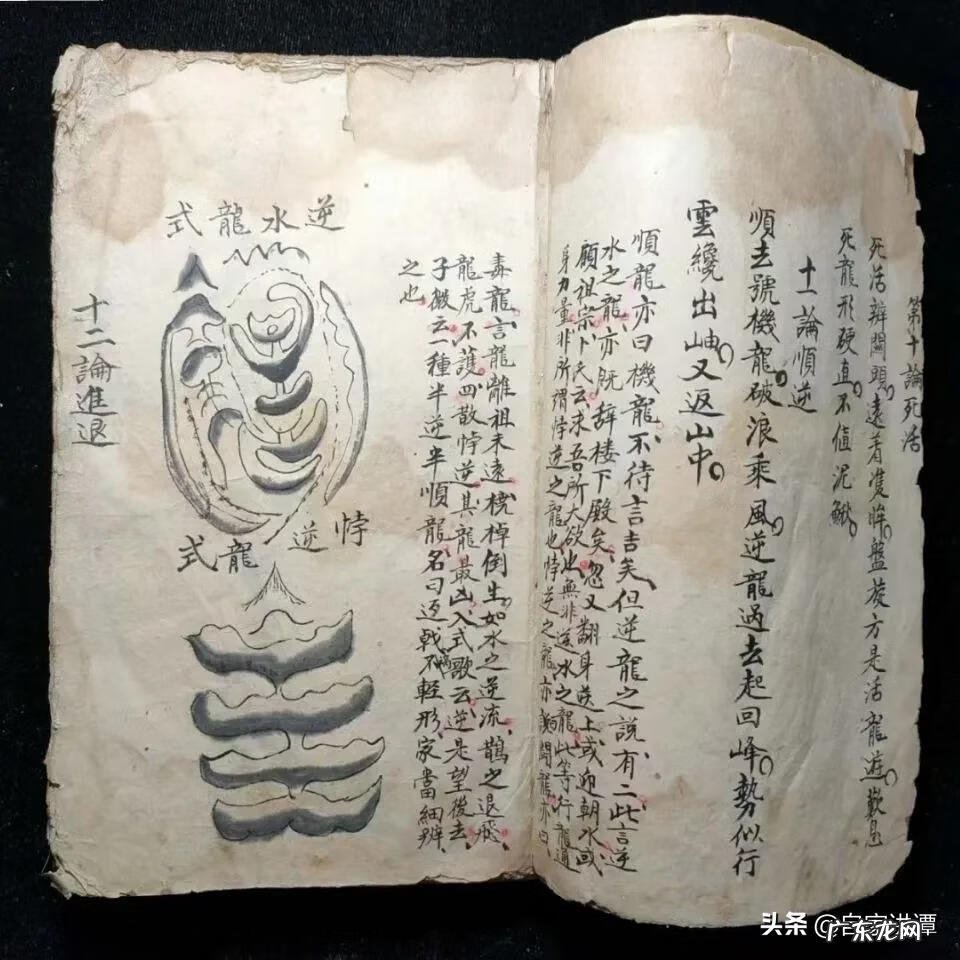 第十論死活
死活辨關頭遠着雙眸盤旋方是活龍遊歎息
死龍形硬直不值泥鰍
十一論順逆
順去號機龍破浪乘風逆龍過去起回峰勢似行
雲纔出岫又返山中
順龍亦曰機龍不待言吉矣但逆龍之說有二此言逆
水之龍亦既辞楼下殿矣忽又翻身逆上或迎朝水或
顧祖宗卜氏云求吾所大欲也無非逆水之龍此等行龍通
身力量非所謂悖逆之龍也悖逆之龍亦開龍亦曰
毒龍言龍離祖未遠橈棹倒生如水之逆流鷁之退飛
龍虎不護四散悖逆其龍最凶入式歌云逆是望後去
子微云一種半逆半順龍名曰迓戟禍不輕形家當細辨
之也
逆水龍式
悖逆龍式
十二論進退
头条 @客家洪潭
广东龙网